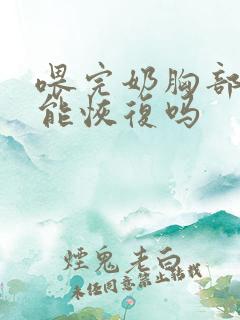 喂完奶胸部
能恢復吗
煙鬼老白
未任同意禁止转载